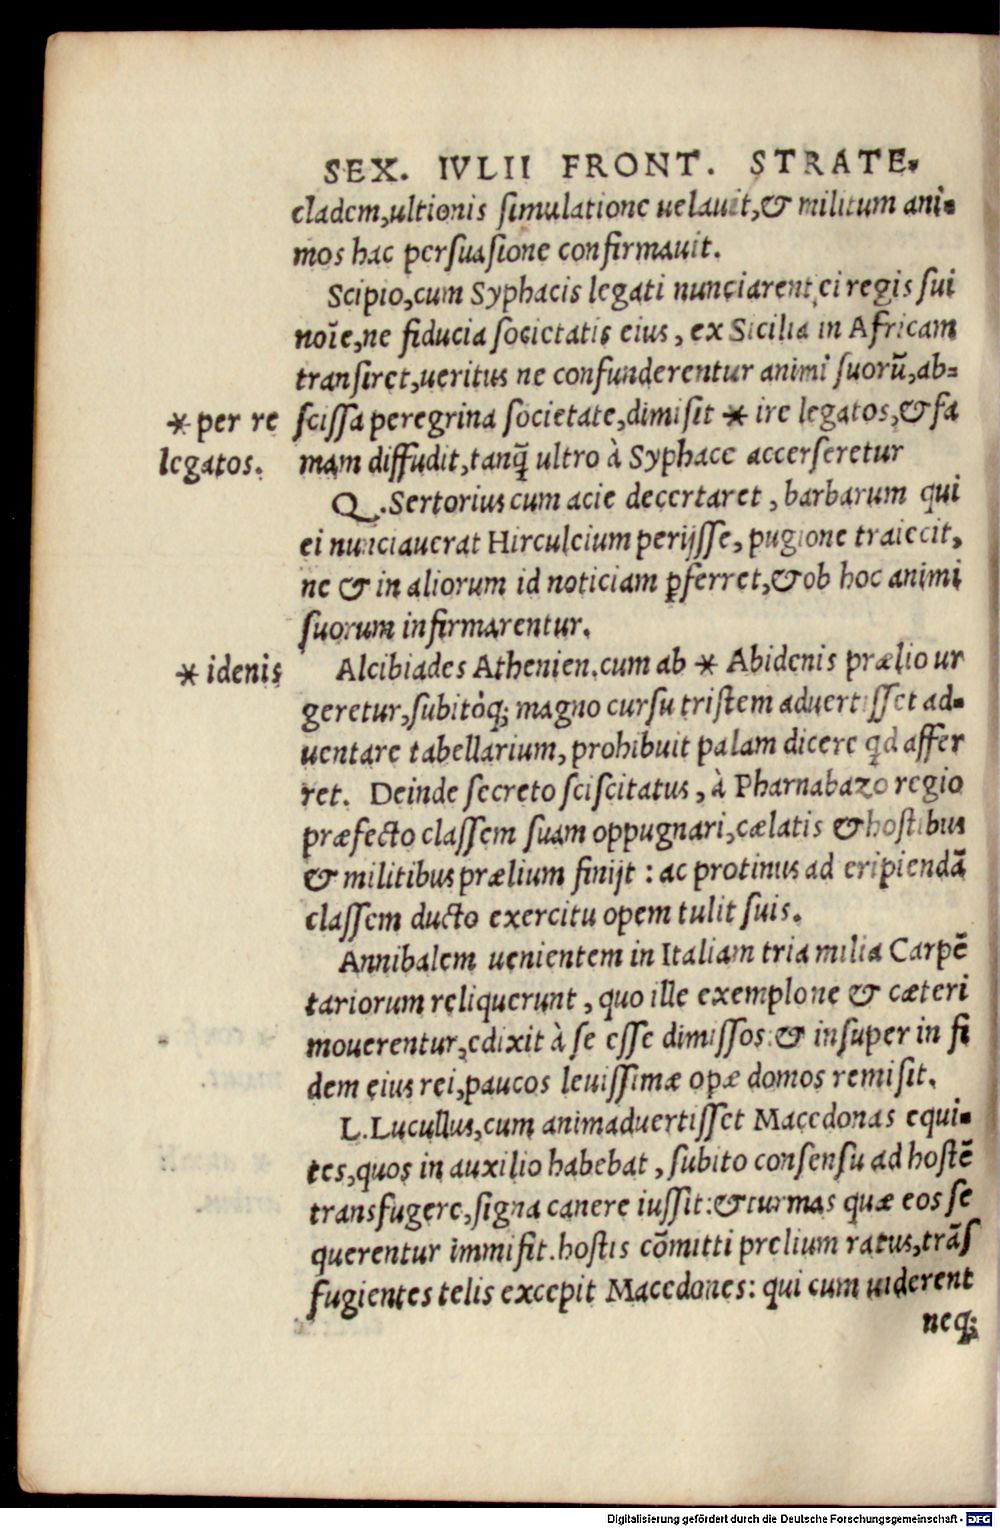 SEX. IVLII FRONT. STRATE.
cladem,ultionis ſimulatione uelauit,& militum ani-
mos hac perſuaſione confirmauit.
Scipio,cum Syphacis legati nunciarent ei regis ſui
noīe,ne fiducia ſocietatis eius, ex Sicilia in Africam
tranſiret,ueritus ne confunderentur animi ſuorū,ab-
* per re ſciſſa peregrina ſocietate,dimiſit * ire legatos,& fa
legatos. mam diffudit,tanq̃ ultro à Syphace accerſeretur
Q. Sertorius cum acie decertaret, barbarum qui
ei nunciauerat Hirculeium perijſſe, pugione traiecit,
ne & in aliorum id noticiam ꝑferret,& ob hoc animi
ſuorum infirmarentur.
* idenis Alcibiades Athenien.cum ab * Abidenis prælio ur
geretur,ſubitòq; magno curſu triſtem aduertiſſet ad-
uentare tabellarium, prohibuit palam dicere qd affer
ret. Deinde ſecreto ſciſcitatus, à Pharnabazo regio
præfecto claſſem ſuam oppugnari,cælatis & hoſtibus
& militibus prælium finijt : ac protinus ad eripiendā
claſſem ducto exercitu opem tulit ſuis.
Annibalem uenientem in Italiam tria milia Carpē
tariorum reliquerunt, quo ille exemplo ne & cæteri
mouerentur,edixit à ſe eſſe dimiſſos:& inſuper in fi
dem eius rei,paucos leuiſſimæ opæ domos remiſit.
L.Lucullus,cum animaduertiſſet Macedonas equi-
tes,quos in auxilio habebat, ſubito conſenſu ad hoſtē
transfugere,ſigna canere iuſſit:& turmas quæ eos ſe
querentur immiſit.hoſtis cōmitti prelium ratus,trāſ
fugientes telis excepit Macedones: qui cum uiderent
neq;
Digitalisierung gefördert durch die Deutsche Forschungsgemeinschaft - DFG